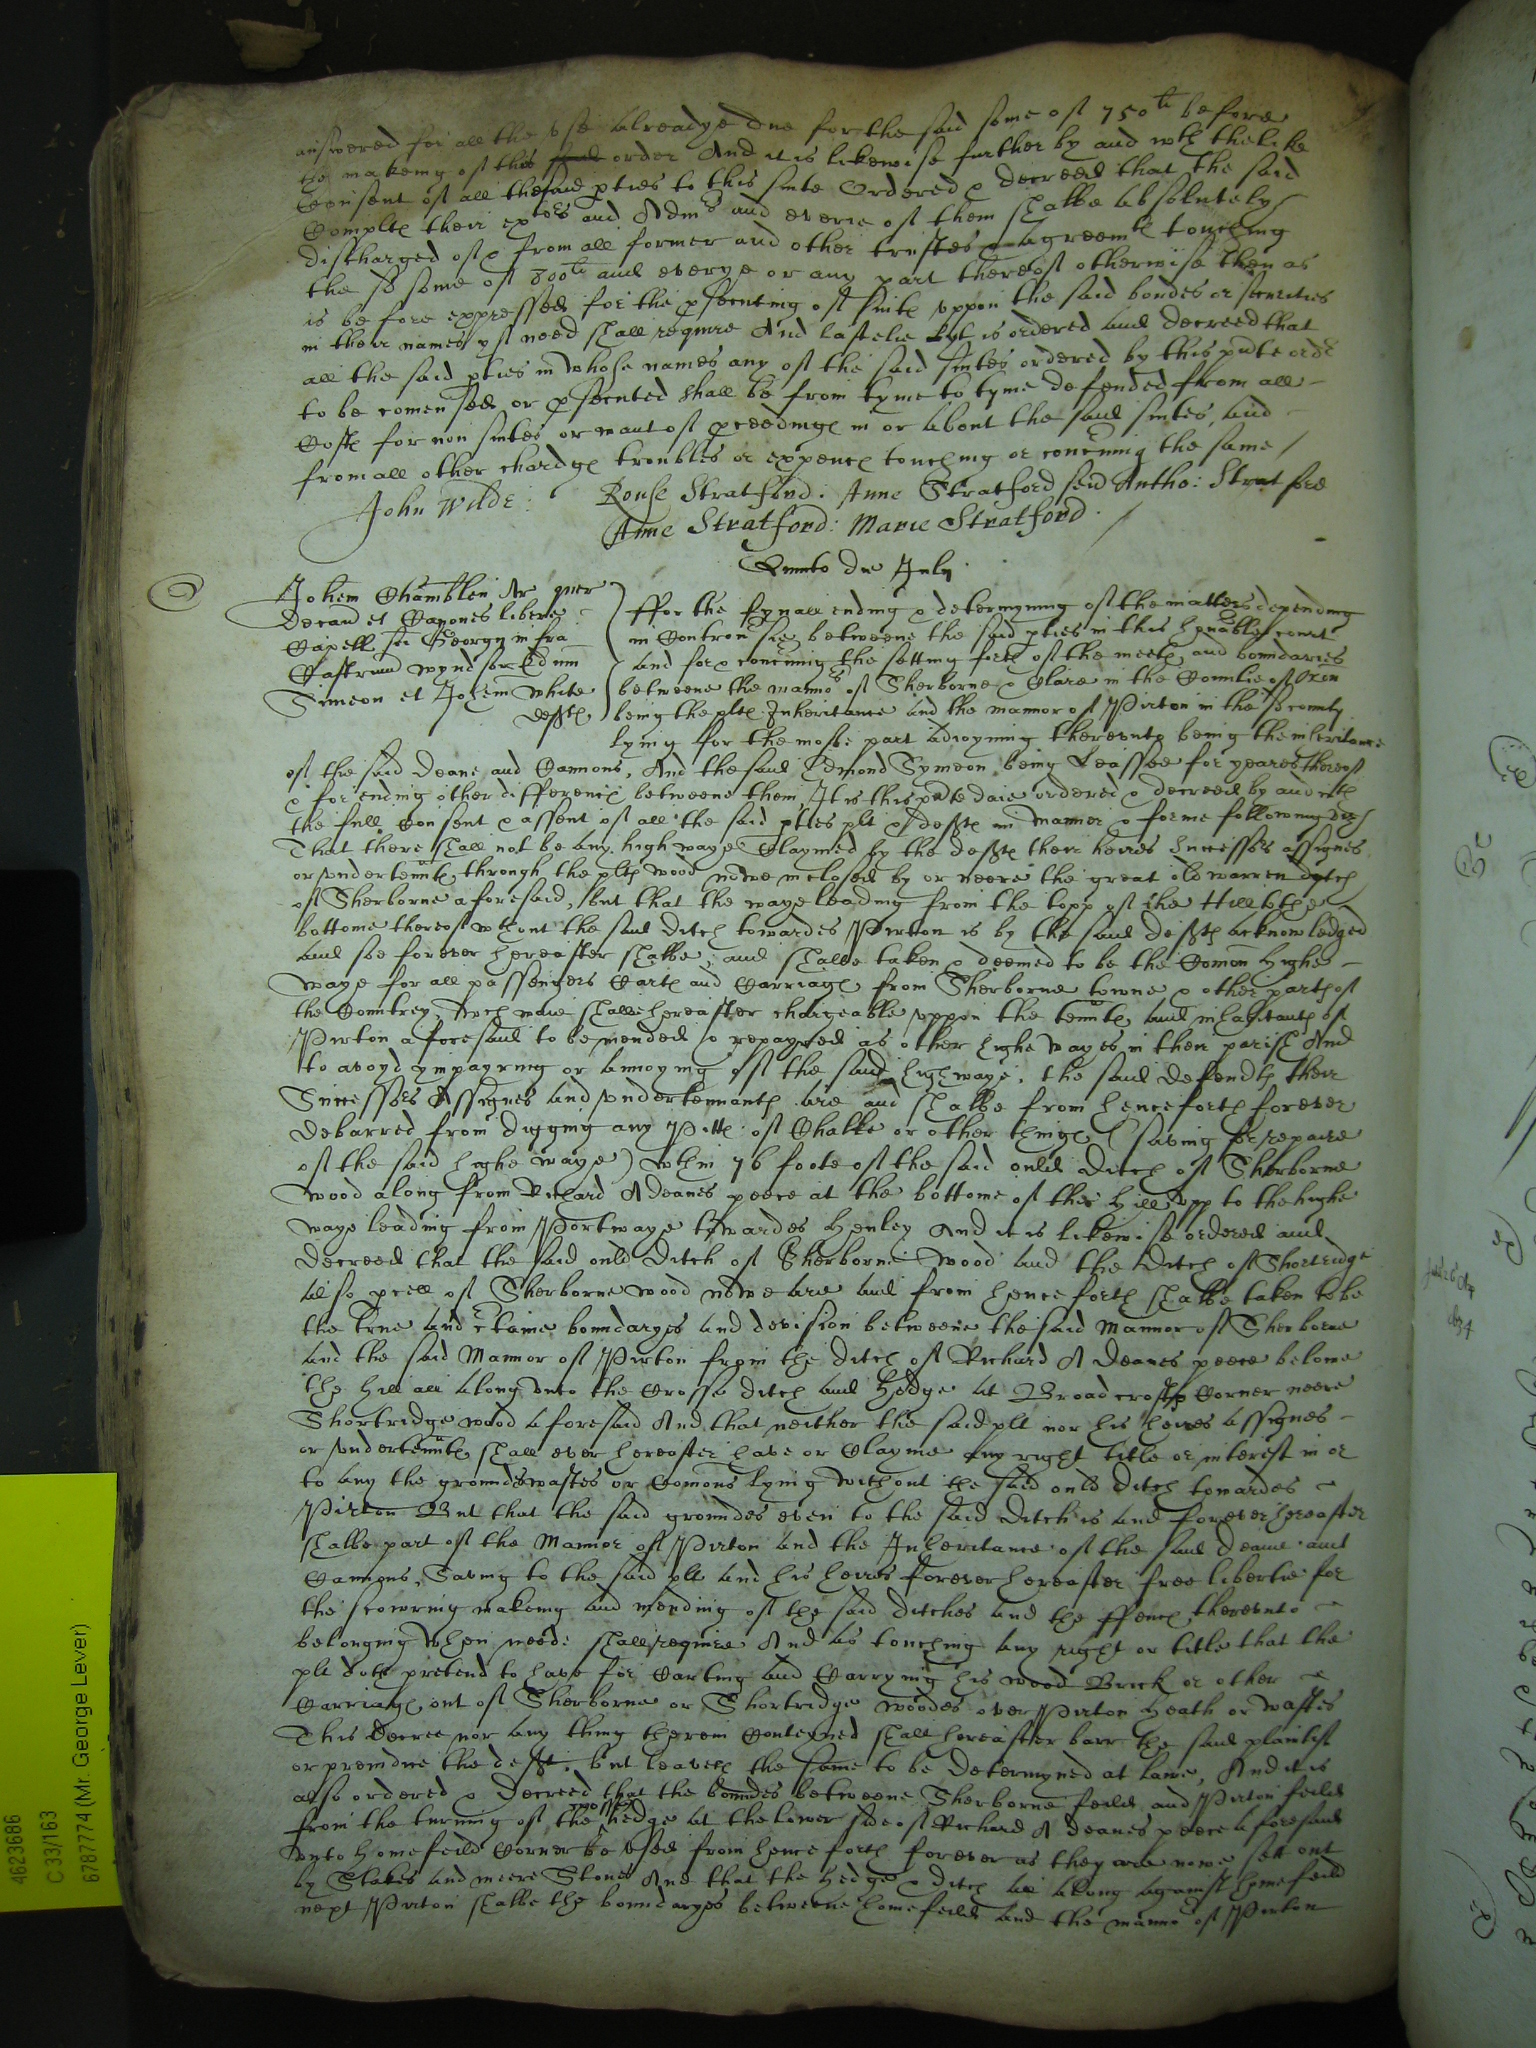 answered for all the vse alreadye due for the said some of 750li before
the makeing of this said order And it is likewise further by and wth the like
Consent of all the said pties to this suite Ordered & decreed that the said
Complts their exrs and Admrs and everie of them shalbe absolutely
discharged of & from all former and other trustes & agreemts touching
the sd some of 800li and everye or any part thereof otherwise then as
is before expressed for the psecuting of suits vppon the said bondes or securities
in their names yf need shall require And lastelie yt is ordered and decreed that
all the said pties in whose names any of the said suites ordered by this pnte order
to be comensed or psecuted shall be from tyme to tyme defended from all
Costs for non suites or want of pceedings in or about the said suites, and
from all other chardgs troubles or expencs touching or concning the same /
John Wilde : Rouse Stratford. Anne Stratford Antho: Stratford
Anne Stratford: Marie Stratford. /
Quinto die Julij
Johem Chamblein Ar quer
Decan et Canones libere
Capelle sci Georgij infra
Castrum wyndsor Edmu
Simeon et Johem White
defts
ffor the fynall ending & determyning of the matters depending
in Controusie betweene the said pties in this honable court
and for & concning the setting forth of the meets and boundaries
betweene the mannors of Sherborne & Clare in the Countie of Oxon
being the plts Inheritance and the mannor of Pirton in the sd county
lying for the moste part adioyning therevnto being the inheritance
of the said Deane and Cannons, And the said Edmond Symeon being Leassee for yeares thereof
& for ending other differencs betweene them It is this pnte daie ordered & decreed by and wth
the full Consent & assent of all the said pties plt & defts in manner & forme following vizt
That there shall not be any high waye Claymed by the defts their heires Successors assignes
or vndertennts through the plts wood nowe inclosed by or neere the great old warren dytch
of Sherborne aforesaid, but that the waye leading from the topp of the Hill to the
bottome thereof wthout the said ditch towardes Pirton is by the said defts acknowledged
and soe forever hereafter shalbe, and shalbe taken & deemed to be the Comon highe
waye for all passengers Carts and Carriags from Sherborne towne & other parts of
the Countrey, wch waie shalbe hereafter chargeable vppon the tennts and inhabitants of
Pirton aforesaid to be mended & repayred as other highe wayes in their parish And
to avoyd ympayring or annoying of the said high waye, the said defendts their
Successors Assignes and vndertennants are and shalbe from henceforth forever
debarred from digging any Pitts of Chalke or other things (saving for repaire
of the said highe waye) wthin 76 foote of the said ould ditch of Sherborne
Wood along from Richard A Deanes peece at the bottome of the hill vpp to the highe
waye leading from Portwaye towardes Henley And it is likewise ordered and
decreed that the said ould ditch of Sherborne wood and the ditch of Shortridge
also pcell of Sherborne wood nowe are and from henceforth shalbe taken to be
the true and ctaine boundaryes and devision betweene the said Mannor of Sherborne
and the said Mannor of Pirton from the ditch of Richard A Deanes peece belowe
the hill all along vnto the Crosse ditch and hedge at Broad crosse Corner neere
Shortridge wood aforesaid And that neither the said plt nor his heires assignes
or vndertennts shall ever hereafter have or Clayme any right title or interest in or
to any the groundes wastes or Comons lying without the said ould ditch towardes
Pirton But that the said groundes even to the said ditch is and forever hereafter
shalbe part of the Mannor of Pirton and the Inheritance of the said Deane and
Cannons, Saving to the said plt and his heires forever hereafter free libertie for
the scowring makeing and mending of the said ditches and the ffencs therevnto
belonging when neede shall require And as touching any right or title that the
plt doth pretend to have for Carting and Carrying his wood Brick or other
Carriags out of Sherborne or Shortridge woodes over Pirton heath or wastes
This decree nor any thing therein Conteyned shall hereafter barr the said plaintif
or preiudice the defts. but leaveth the same to be determyned at lawe, And it is
also ordered & decreed that the boundes betweene Sherborne feild and Pirton feild
from the turning of the hedge at the lower side of Richard A Deanes peece aforesaid
vnto homefeild Corner be vsed from henceforth forever as they are nowe sett out
by Stakes and meere Stones And that the hedge & ditch all along against homefeild
next Pirton shalbe the boundaryes betweene homefeild and the mannor of Pirton
4623686
C 33/163
6787774 (Mr. George Lever)